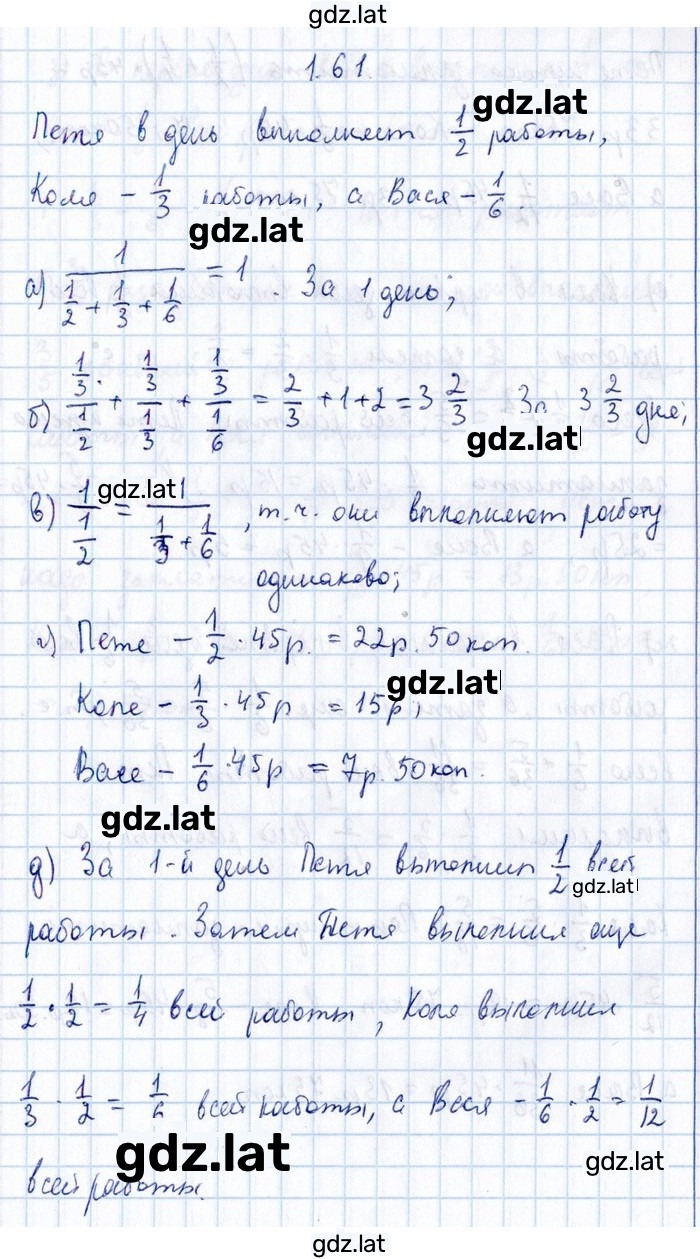 gdz.lat
1.61
gdz.lat
Петя в день выполняет 1/2 работы,
Коля – 1/3 работы, а Вася – 1/6.
gdz.lat
а) 1/(1/2 + 1/3 + 1/6) = 1. За 1 день;
б) (1/3)/(1/2) + (1/3)/(1/3) + (1/3)/(1/6) = 2/3 + 1 + 2 = 3 2/3 За 3 2/3 дня;
gdz.lat
в) 1/(1/2) = 1/(1/3 + 1/6), т.ч. они выполняют работу
gdz.lat
одинаково;
г) Пете – 1/2 · 45р. = 22р. 50коп.
gdz.lat
Коле – 1/3 · 45р = 15р;
Васе – 1/6 · 45р = 7р. 50коп.
gdz.lat
д) За 1-й день Петя выполнил 1/2 всей
gdz.lat
работы. Затем Петя выполнил еще
1/2 · 1/2 = 1/4 всей работы, Коля выполнил
1/3 · 1/2 = 1/6 всей работы, а Вася – 1/6 · 1/2 = 1/12
gdz.lat
gdz.lat
всей работы.
gdz.lat